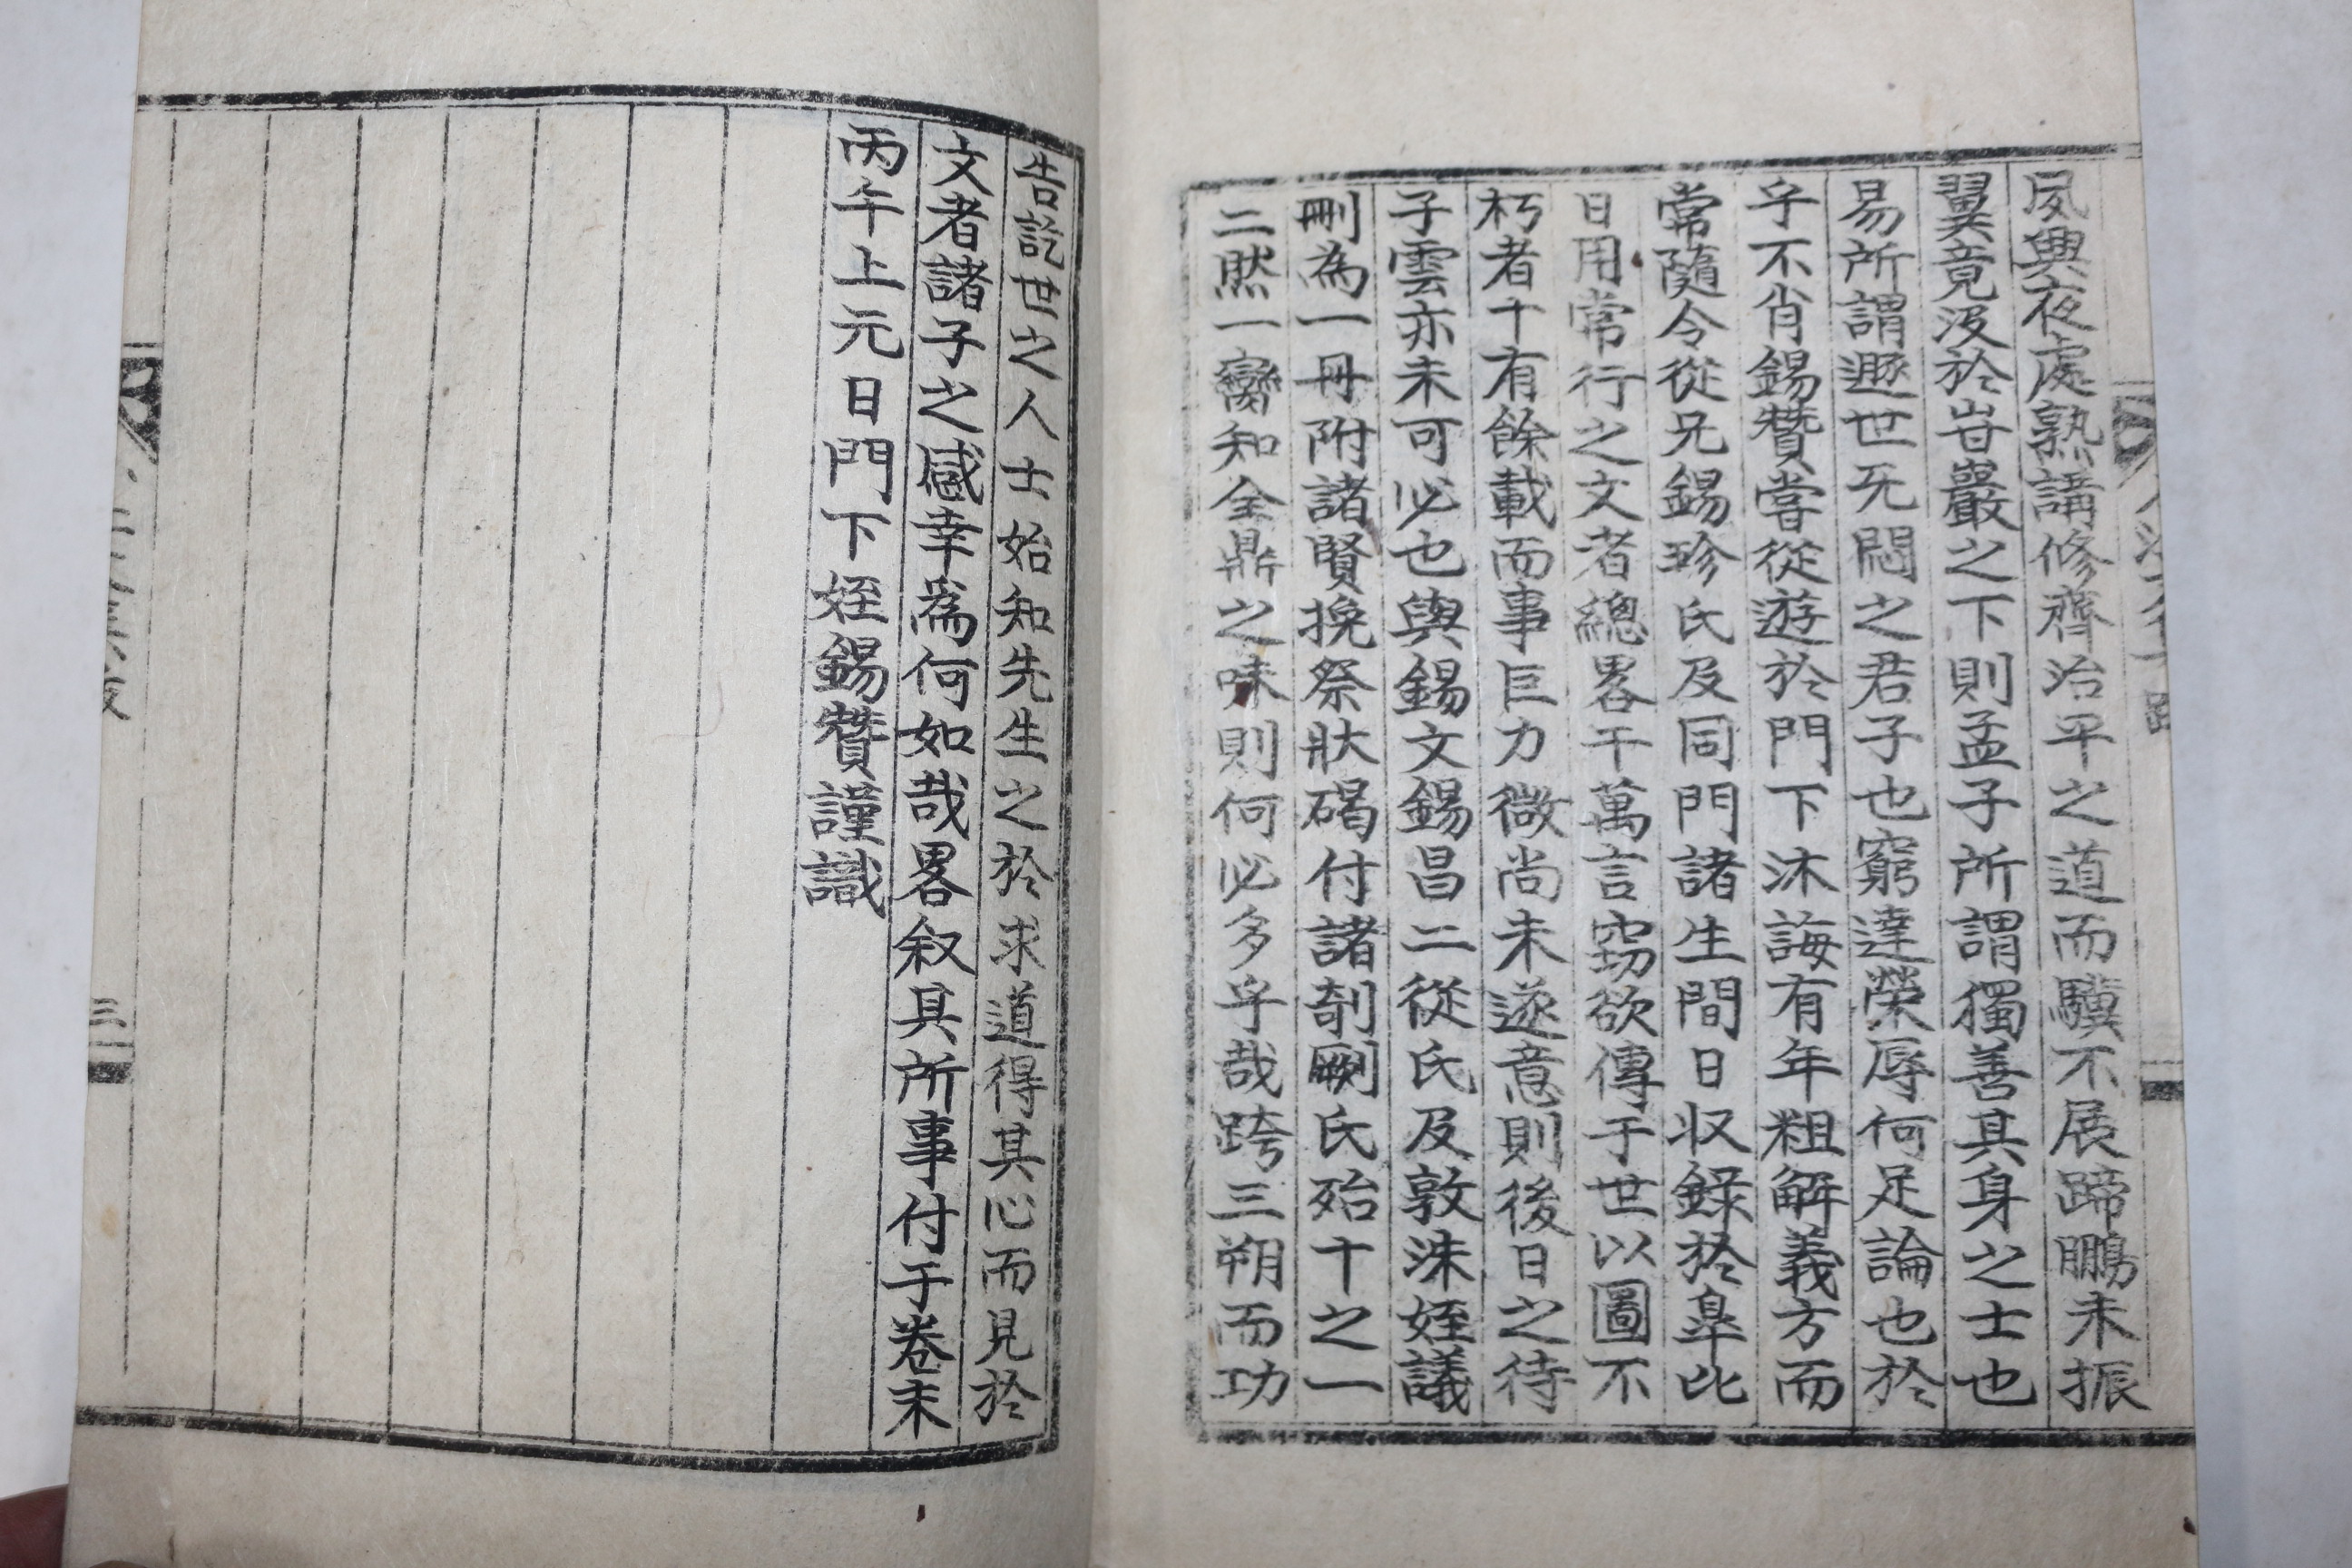 夙興夜處熟講修齊治平之道而驥不展蹄鵬未振
翼竟沒於岧巖之下則孟子所謂獨善其身之士也
易所謂遯世旡悶之君子也窮達榮辱何足論也於
乎不肖錫贊嘗從遊於門下沐誨有年粗解義方而
常隨令從兄錫珍氏及同門諸生間日収錄於臯比
日用常行之文者總畧干萬言竊欲傳于世以圖不
朽者十有餘載而事巨力微尚未遂意則後日之待
子雲亦未可必也與錫文錫昌二從氏及敦洙姪議
刪為一冊附諸賢挽祭狀碣付諸剞劂氏殆十之一
二然一臠知全鼎之味則何必多乎哉跨三朔而功
告訖世之人士始知先生之於求道得其心而見於
文者諸子之感幸爲何如哉畧叙其所事付于卷末
丙午上元日門下姪錫贊謹識
三